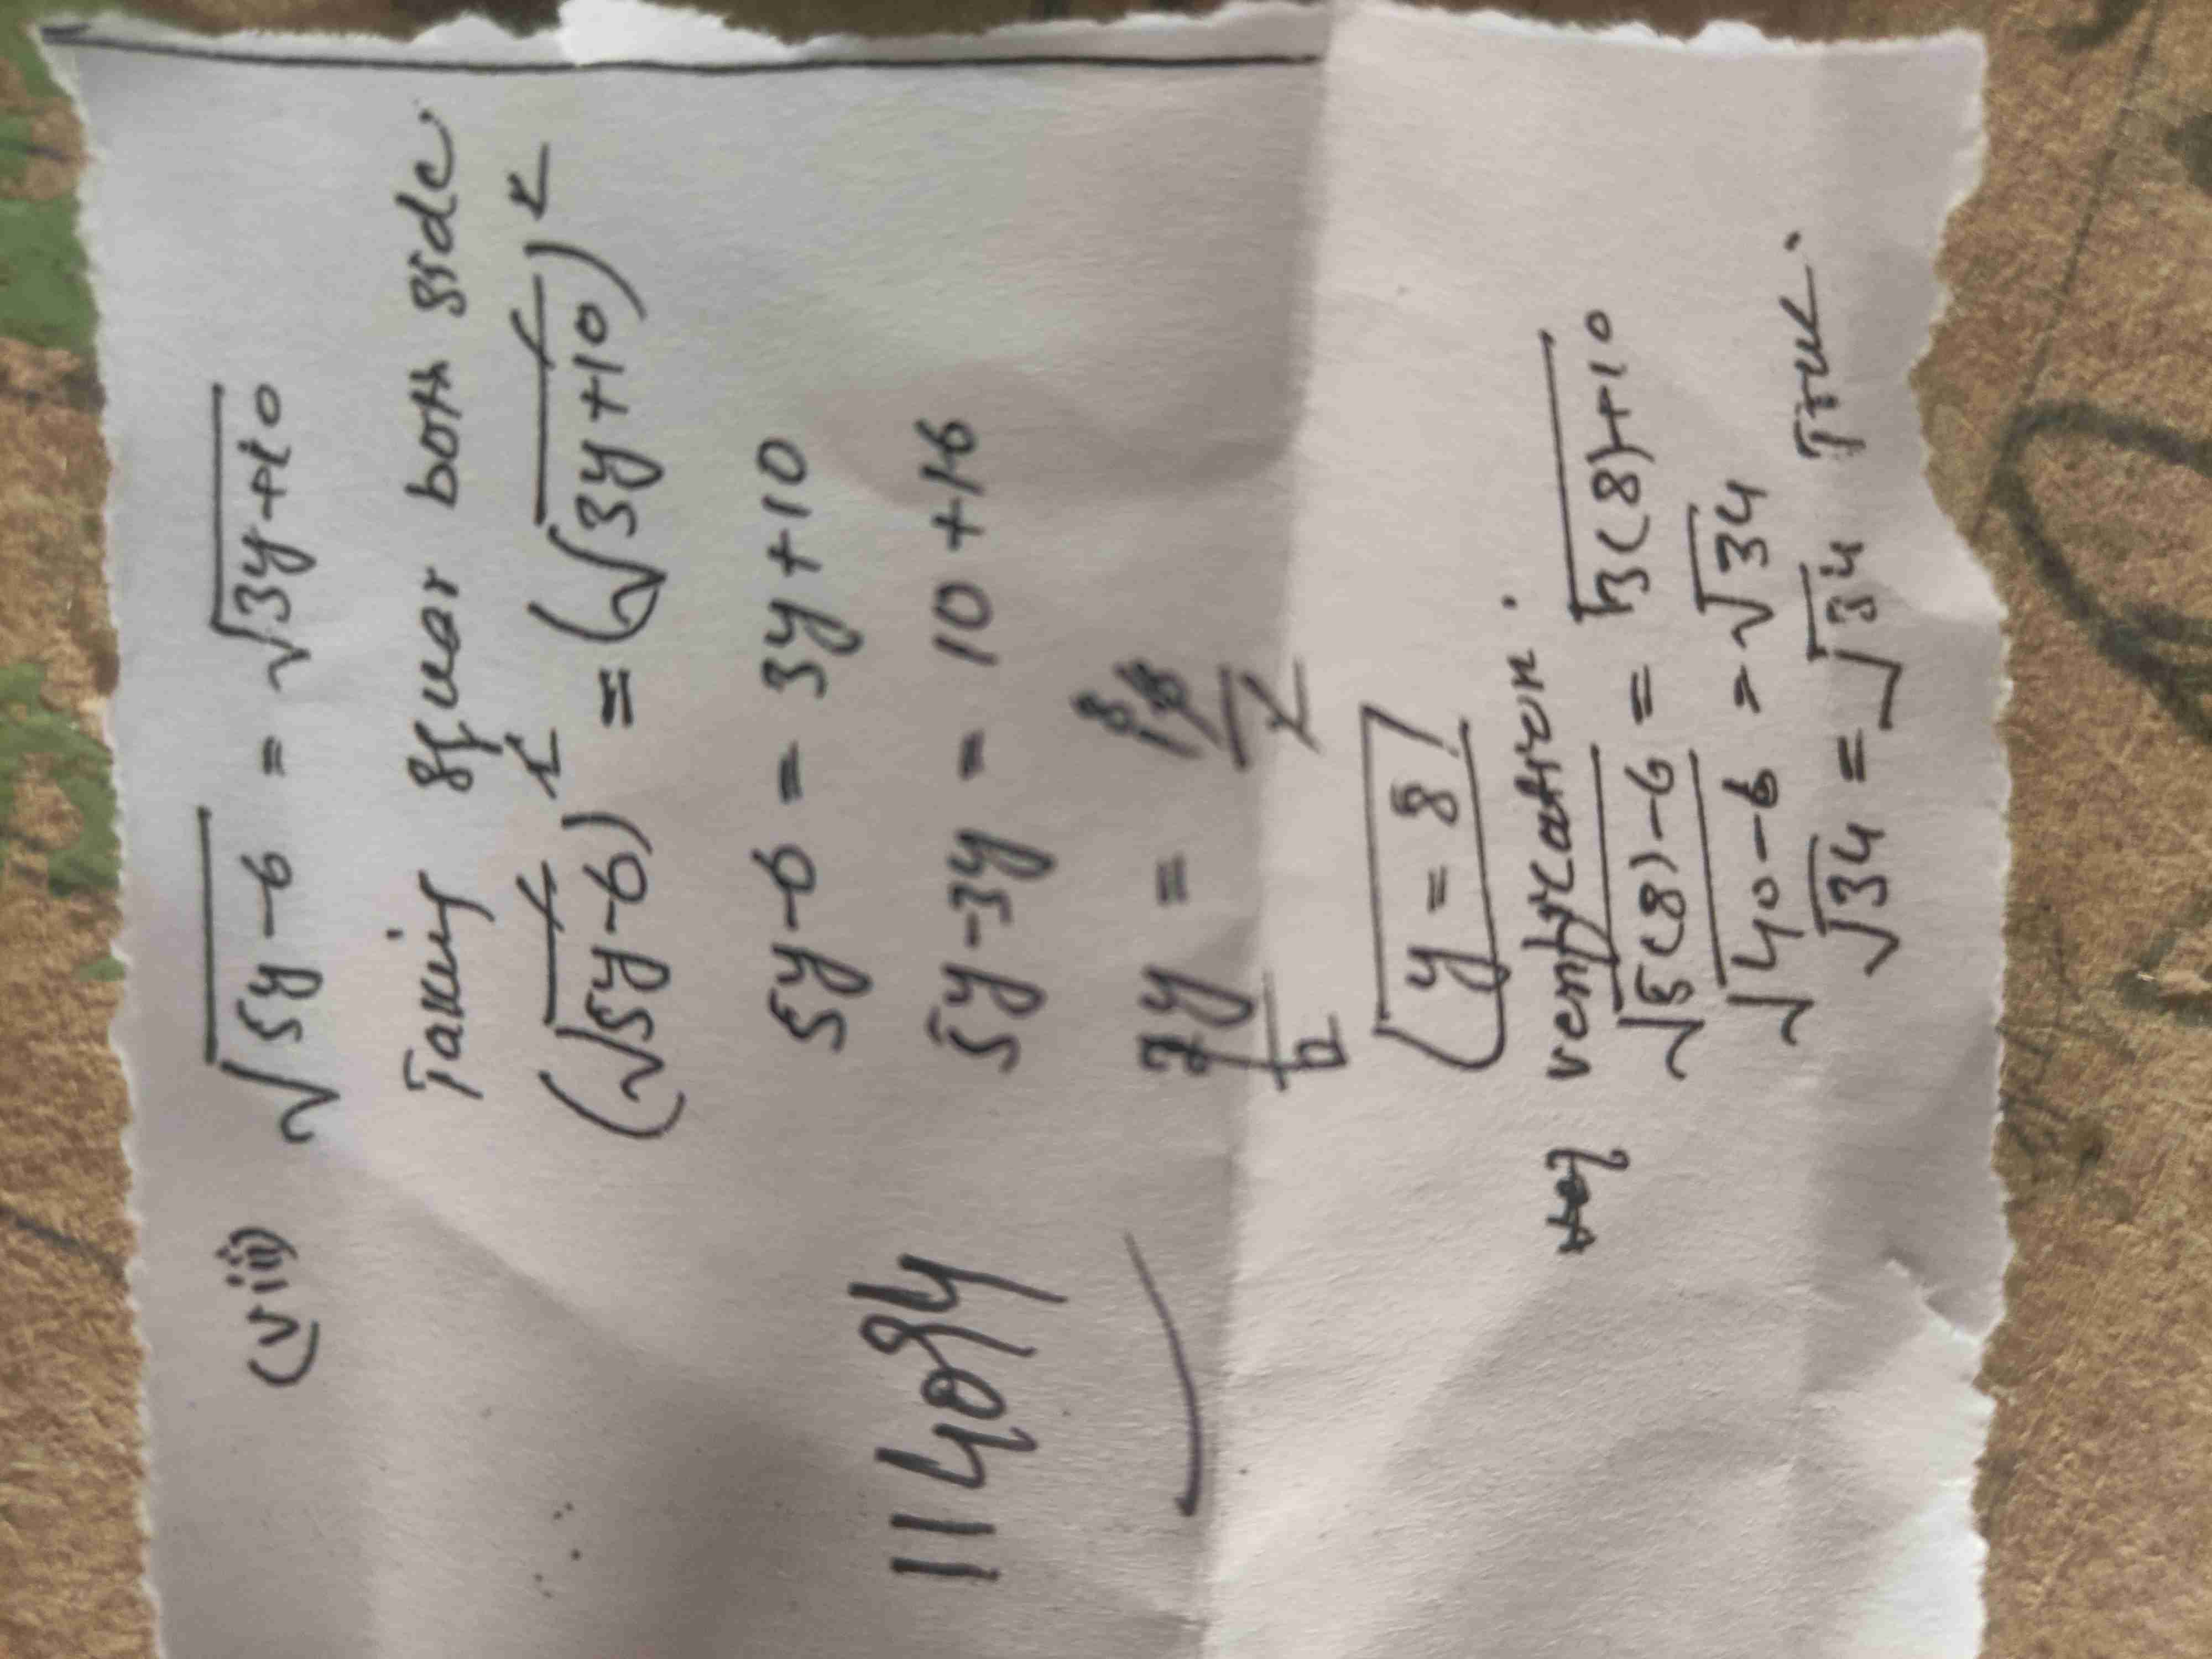 (viii) √5y-6 = √3y+10
Taking squar both side
(√5y-6)² = (√3y+10)²
5y-6 = 3y+10
5y-3y = 10+16
2y/2 = 16/2 8
y = 8
for verification.
√5(8)-6 = √3(8)+10
√40-6 = √34
√34 = √34 True.